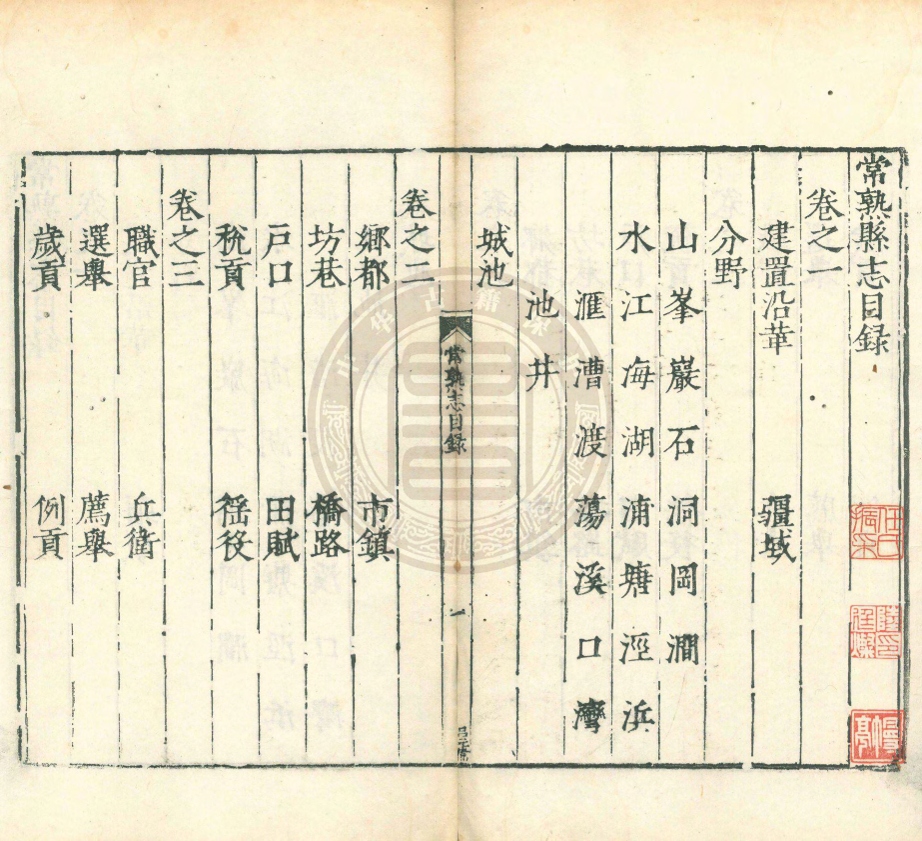 常熟縣志目録
卷之一
建置沿革 疆域
分野
山 峯 巖 石 洞 岡 澗
水 江 海 湖 浦 塘 涇 浜
滙 漕 渡 蕩 溪 口 灣
池 井
城池
常熟志目録 一
卷之二
鄉都 市鎮
坊巷 橋路
戸口 田賦
稅貢 徭役
卷之三
職官 兵衛
選舉 薦舉
歲貢 例貢